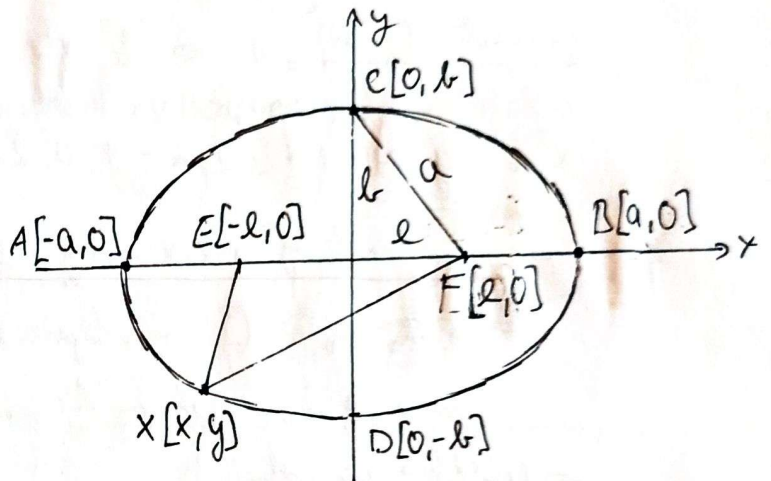 y
C[0, b]
a
b
A[-a,0]
E[-e,0]
e
B[a,0]
x
F[e,0]
X[x,y]
D[0,-b]